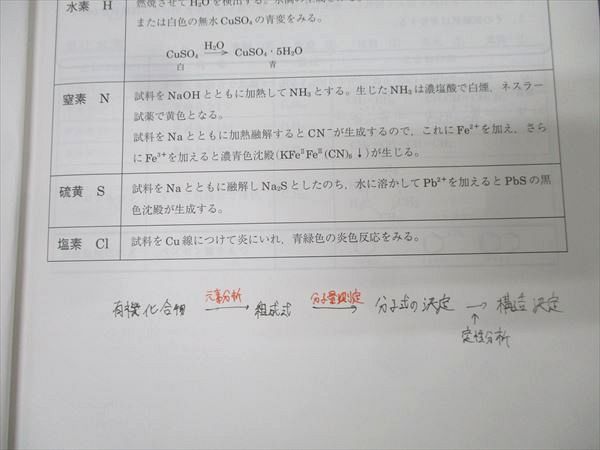 水素 H
燃焼させてH₂Oを検出する。
または白色の無水CuSO₄の青変をみる。
CuSO₄ H₂O→ CuSO₄・5H₂O
白 青
窒素 N
試料をNaOHとともに加熱してNH₃とする。生じたNH₃は濃塩酸で白煙，ネスラー
試薬で黄色となる。
試料をNaとともに加熱融解するとCN⁻が生成するので，これにFe²⁺を加え，さら
にFe³⁺を加えると濃青色沈殿(KFeᴵᴵFeᴵᴵᴵ(CN)₆↓)が生じる。
硫黄 S
試料をNaとともに融解しNa₂Sとしたのち，水に溶かしてPb²⁺を加えるとPbSの黒
色沈殿が生成する。
塩素 Cl
試料をCu線につけて炎にいれ，青緑色の炎色反応をみる。
有機化合物 元素分析→ 組成式 分子量測定→ 分子式の決定 → 構造決定
↑
定性分析